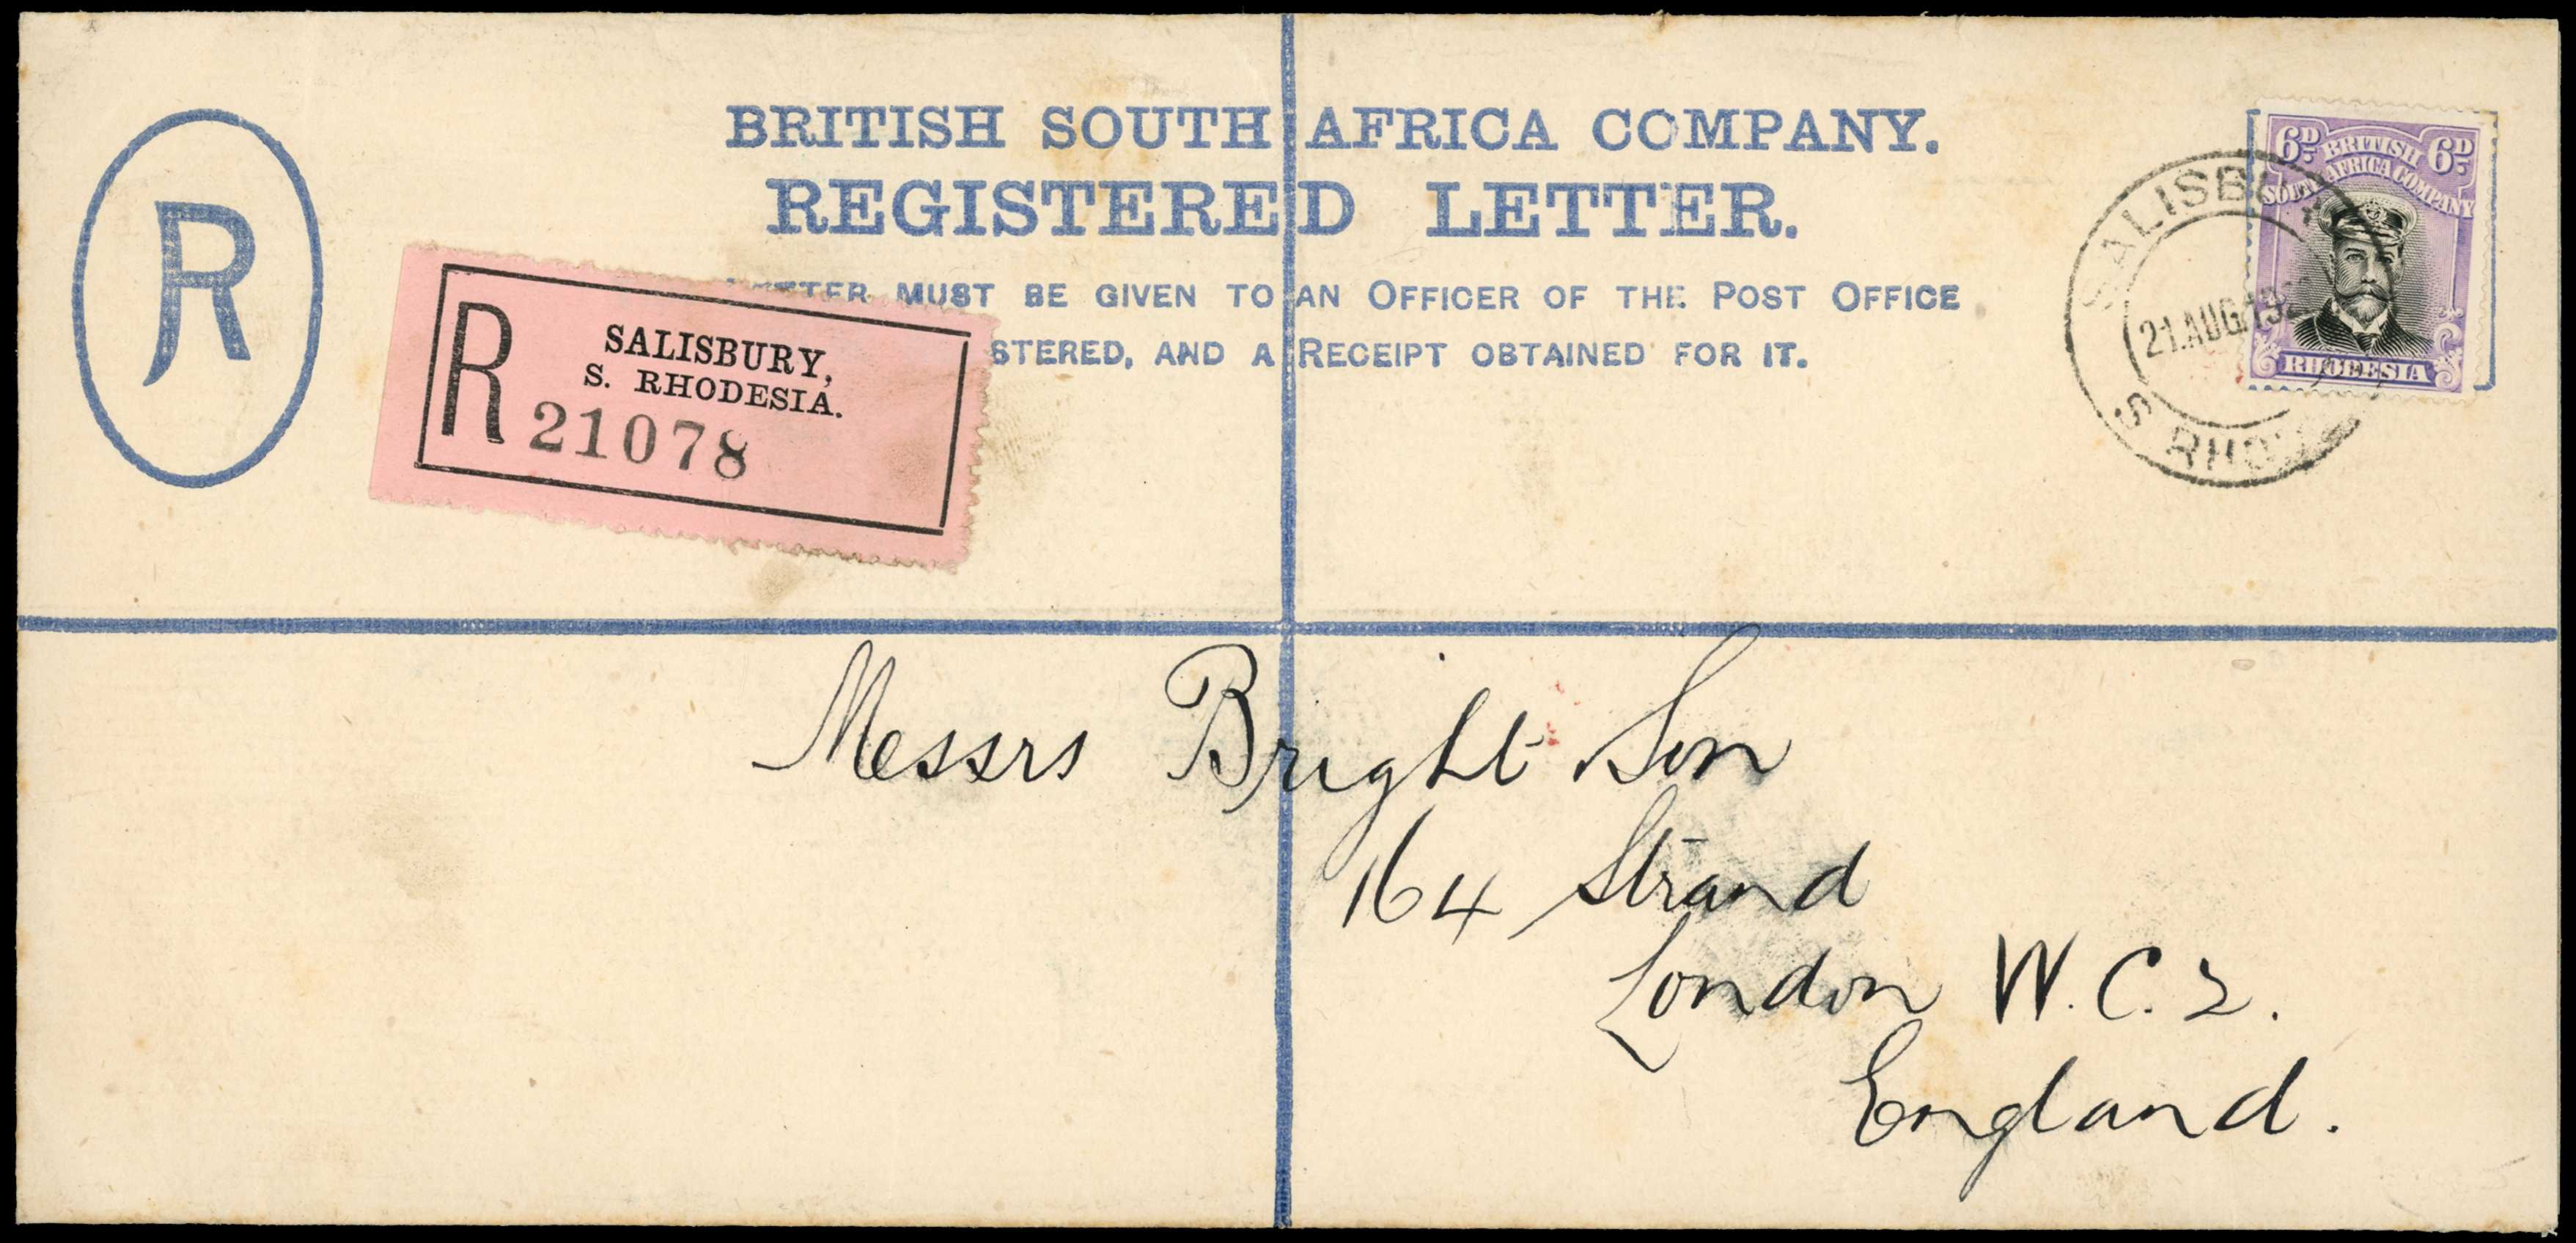 BRITISH SOUTH AFRICA COMPANY.
REGISTERED LETTER.
LETTER MUST BE GIVEN TO AN OFFICER OF THE POST OFFICE
STERED, AND A RECEIPT OBTAINED FOR IT.
R
R
SALISBURY,
S. RHODESIA.
21078
6D BRITISH 6D
SOUTH AFRICA COMPANY
RHODESIA
SALISBU
21.AUG.19
S RHO
Messrs Bright Son
164 Strand
London W.C.2.
England.